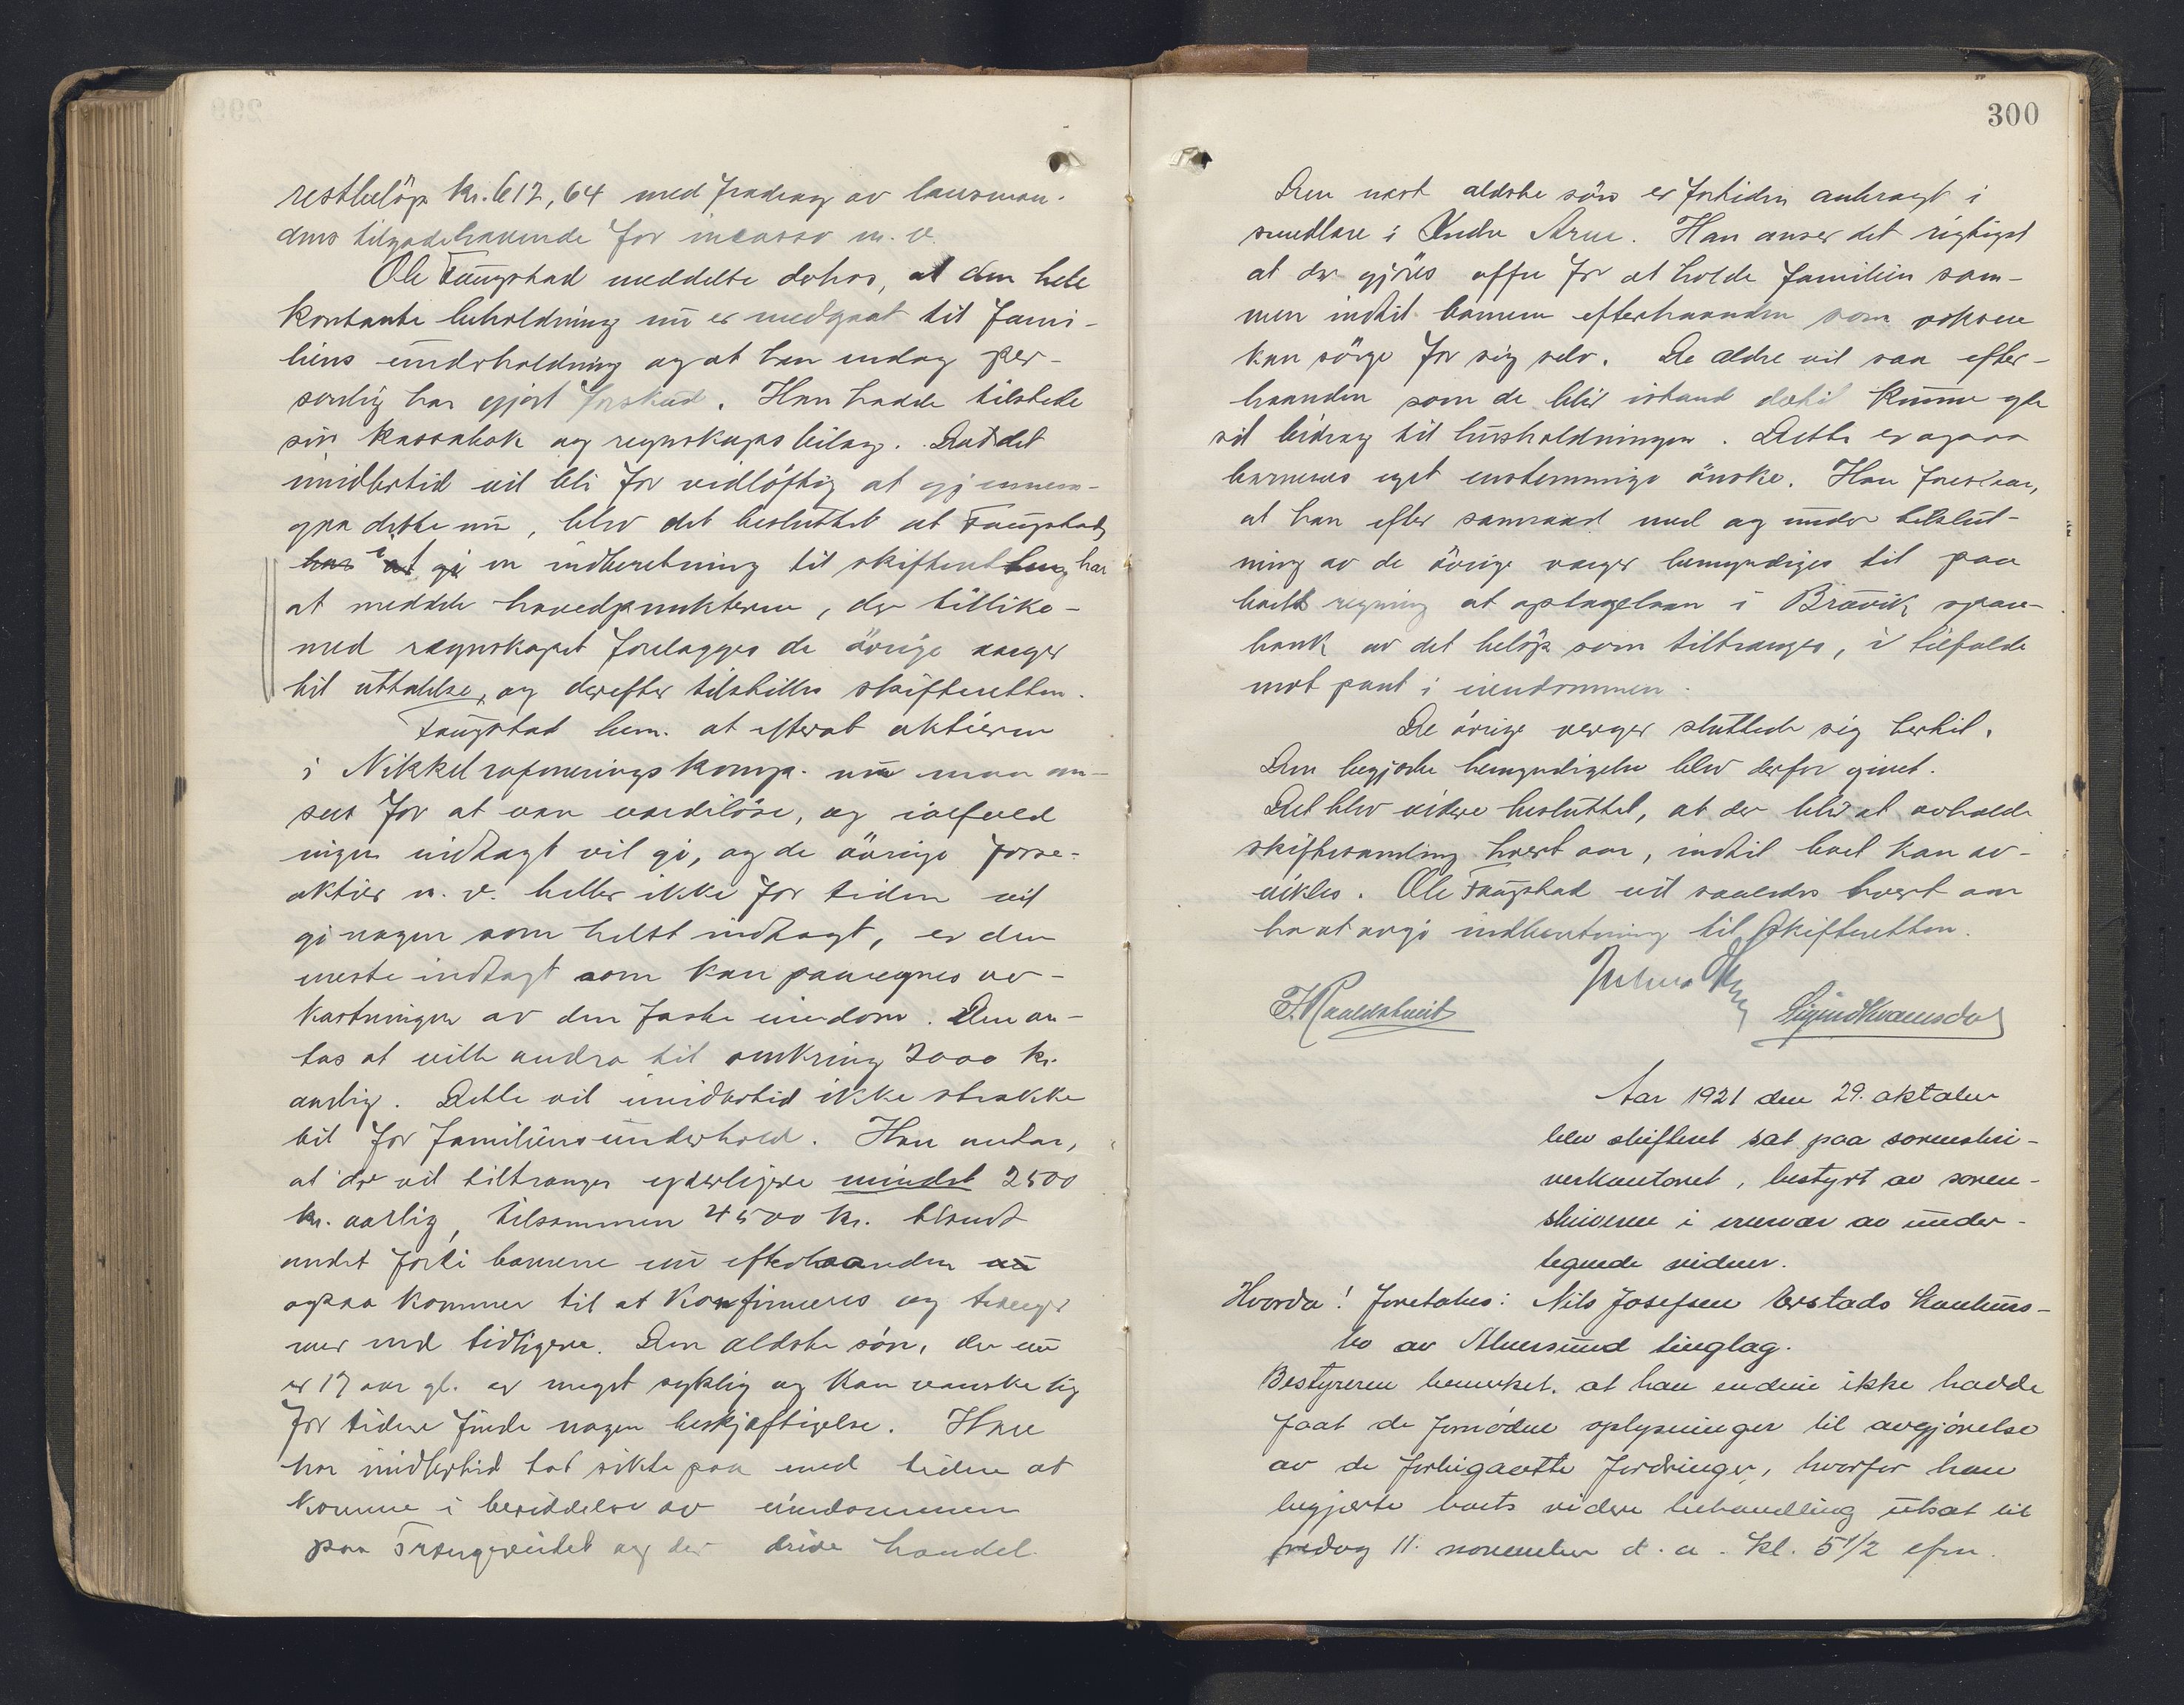 restbelöp kr. 612,64 med fradrag av lensman-
dens tilgodehavende for incasso m. v.
Ole Taugstad meddelte derhos, at den hele
kontante beholdning nu er medgaat til fami-
liens underholdning og at han endog per-
sonlig har gjort forskud. Han hadde tilstede
sin kassabok og regnskapsbilag. Da det
imidlertid vil bli for vidlöftig at gjennem-
gaa dette nu, blev det besluttet at Taugstad
i en indberetning til skifteretten har
at meddele hovedpunkterne, der tillike-
med regnskapet forelægges de övrige verger
til uttalelse, og derefter tilstilles skifteretten.
Taugstad bem. at efterat aktierne
i Nikkelrafineringskomp. nu maa an-
sees for at være værdilöse, og ialfald
ingen indtægt vil gi, og de övrige
aktier m. v. heller ikke for tiden vil
gi nogen som helst indtægt, er den
eneste indtægt som kan paaregnes av-
kastningen av den faste eiendom. Den an-
tas at ville andra til omkring 2000 kr.
aarlig. Dette vil imidlertid ikke strække
til for familiens underhold. Han antar,
at der vil tiltrænges yderligere mindst 2500
kr. aarlig, tilsammen 4500 kr. blandt
andet fordi barnene nu efterhaanden
ogsaa kommer til at konfirmeres og trænger
mer end tidligere. Den ældste sön, der nu
er 17 aar gl. er meget syklig og kan vanskelig
for tiden finde nogen beskjæftigelse. Han
har imidlertid tat sikte paa med tiden at
komme i besiddelse av eiendommen
paa Trengereidet og der drive handel.
300
Den næst ældste sön er fortiden anbragt i
smedlære i Indre Arne. Han anser det rigtigst
at der gjöres offer for at holde familien sam-
men indtil barnene efterhaanden som voksne
kan sörge for sig selv. De ældre vil saa efter-
haanden som de blir istand dertil kunne yde
sit bidrag til husholdningen. Dette er ogsaa
barnenes eget enstemmige önske. Han foreslaar,
at han efter samraad med og under tilslut-
ning av de övrige verger bemyndiges til paa
boets regning at optage laan i Bravik spare-
bank av det belöp som tiltrænges, i tilfælde
mot pant i eiendommen.
De övrige verger sluttede sig hertil.
Den begjærte bemyndigelse blev derfor givet.
Det blev videre besluttet, at der blir at avholde
skiftesamling hvert aar, indtil boet kan av-
vikles. Ole Taugstad vil saaledes hvert aar
ha at avgi indberetning til skifteretten.
Sigurd Kvamsdal
Aar 1921 den 29. oktober
blev skifteret sat paa sorenskri-
verkontoret, bestyrt av soren-
skriveren i nærvær av under-
tegnede vidner.
Hvorda! Foretokes: Nils Josefsen Erstads konkurs-
bo av Alversund tinglag.
Bestyreren bemerket, at han endnu ikke hadde
faat de fornödne oplysninger til avgjörelse
av de forbigaatte fordringer, hvorfor han
begjærte boets videre behandling utsat til
fredag 11. november d. a. kl. 5 1/2 efm.